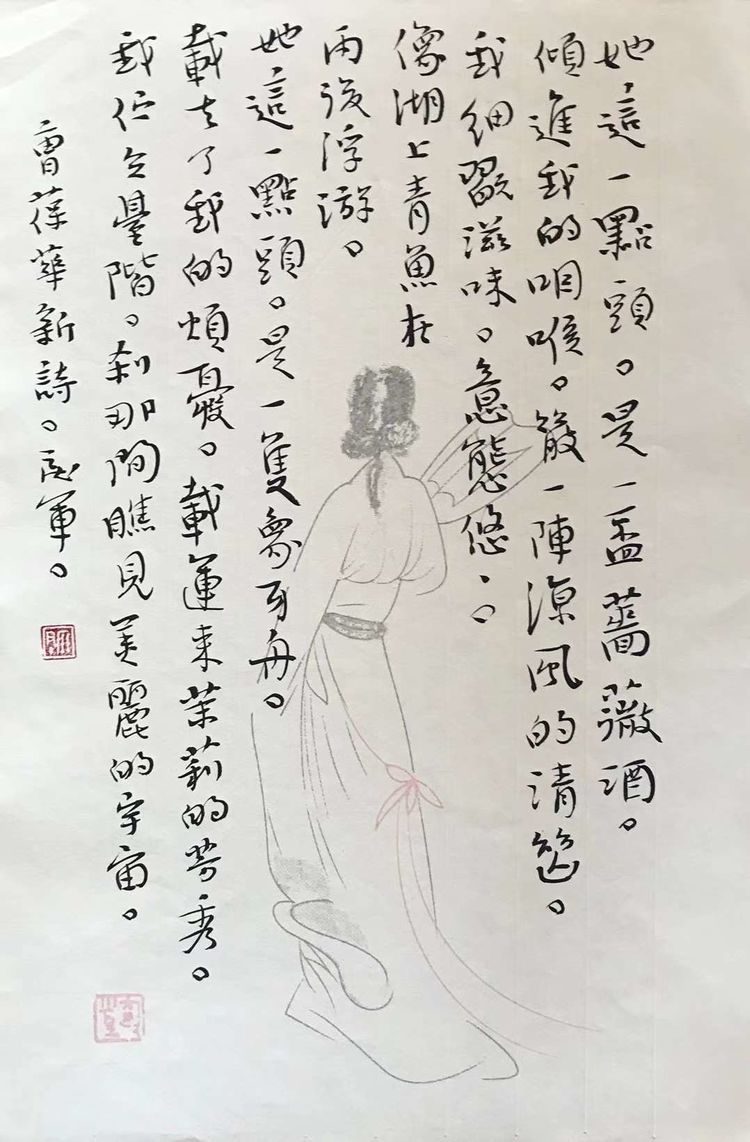 她這一點頭。是一盃薔薇酒。
傾進我的咽喉。一陣涼風的清。
我細翫滋味。意態悠〻。
像湖上青魚在
雨後浮游。
她這一點頭。是一隻象牙舟。
載去了我的煩憂。載運来茉莉的芳秀。
我伫立臺階。刹那間瞧見美麗的宇宙。
曹葆華新詩。軍。